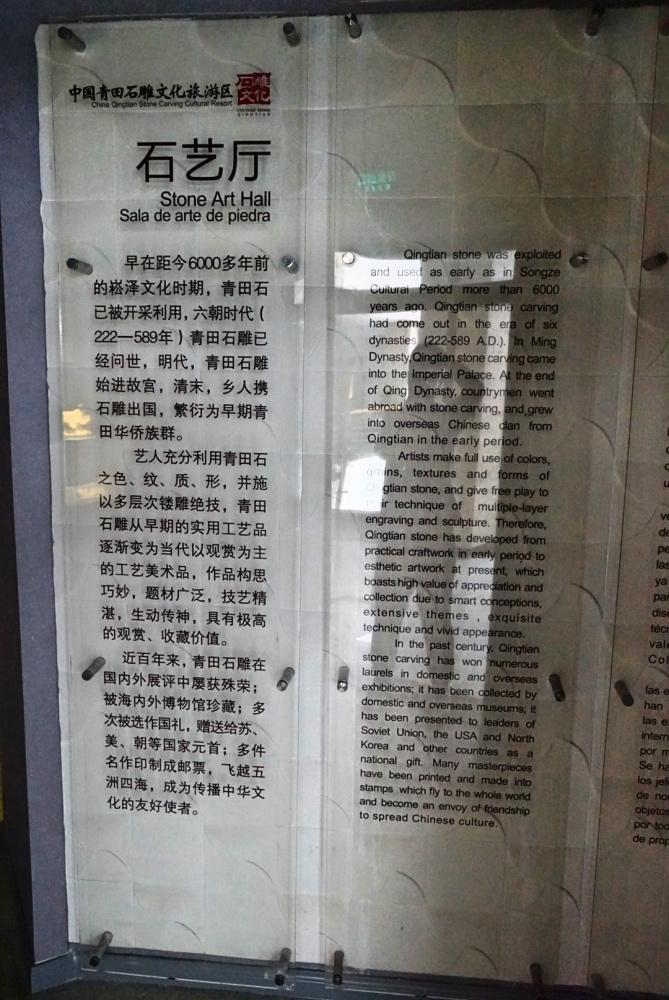 中国青田石雕文化旅游区
China Qingtian Stone Carving Cultural Resort
石雕
文化
石艺厅
Stone Art Hall
Sala de arte de piedra
早在距今6000多年前
的崧泽文化时期，青田石
已被开采利用，六朝时代（
222—589年）青田石雕已
经问世，明代，青田石雕
始进故宫，清末，乡人携
石雕出国，繁衍为早期青
田华侨族群。
艺人充分利用青田石
之色、纹、质、形，并施
以多层次镂雕绝技，青田
石雕从早期的实用工艺品
逐渐变为当代以观赏为主
的工艺美术品，作品构思
巧妙，题材广泛，技艺精
湛，生动传神，具有极高
的观赏、收藏价值。
近百年来，青田石雕在
国内外展评中屡获殊荣；
被海内外博物馆珍藏；多
次被选作国礼，赠送给苏、
美、朝等国家元首；多件
名作印制成邮票，飞越五
洲四海，成为传播中华文
化的友好使者。
Qingtian stone was exploited
and used as early as in Songze
Cultural Period more than 6000
years ago. Qingtian stone carving
had come out in the era of six
dynasties (222-589 A.D.). In Ming
Dynasty,Qingtian stone carving came
into the Imperial Palace. At the end
of Qing Dynasty, countrymen went
abroad with stone carving, and grew
into overseas Chinese clan from
Qingtian in the early period.
Artists make full use of colors,
grains, textures and forms of
Qingtian stone, and give free play to
their technique of multiple-layer
engraving and sculpture. Therefore,
Qingtian stone has developed from
practical craftwork in early period to
esthetic artwork at present, which
boasts high value of appreciation and
collection due to smart conceptions,
extensive themes , exquisite
technique and vivid appearance.
In the past century, Qingtian
stone carving has won numerous
laurels in domestic and overseas
exhibitions; it has been collected by
domestic and overseas museums; it
has been presented to leaders of
Soviet Union, the USA and North
Korea and other countries as a
national gift. Many masterpieces
have been printed and made into
stamps which fly to the whole world
and become an envoy of friendship
to spread Chinese culture.
las e
han
las e
intern
por m
Se ha
los jefe
de no
objetos
por tod
de prop